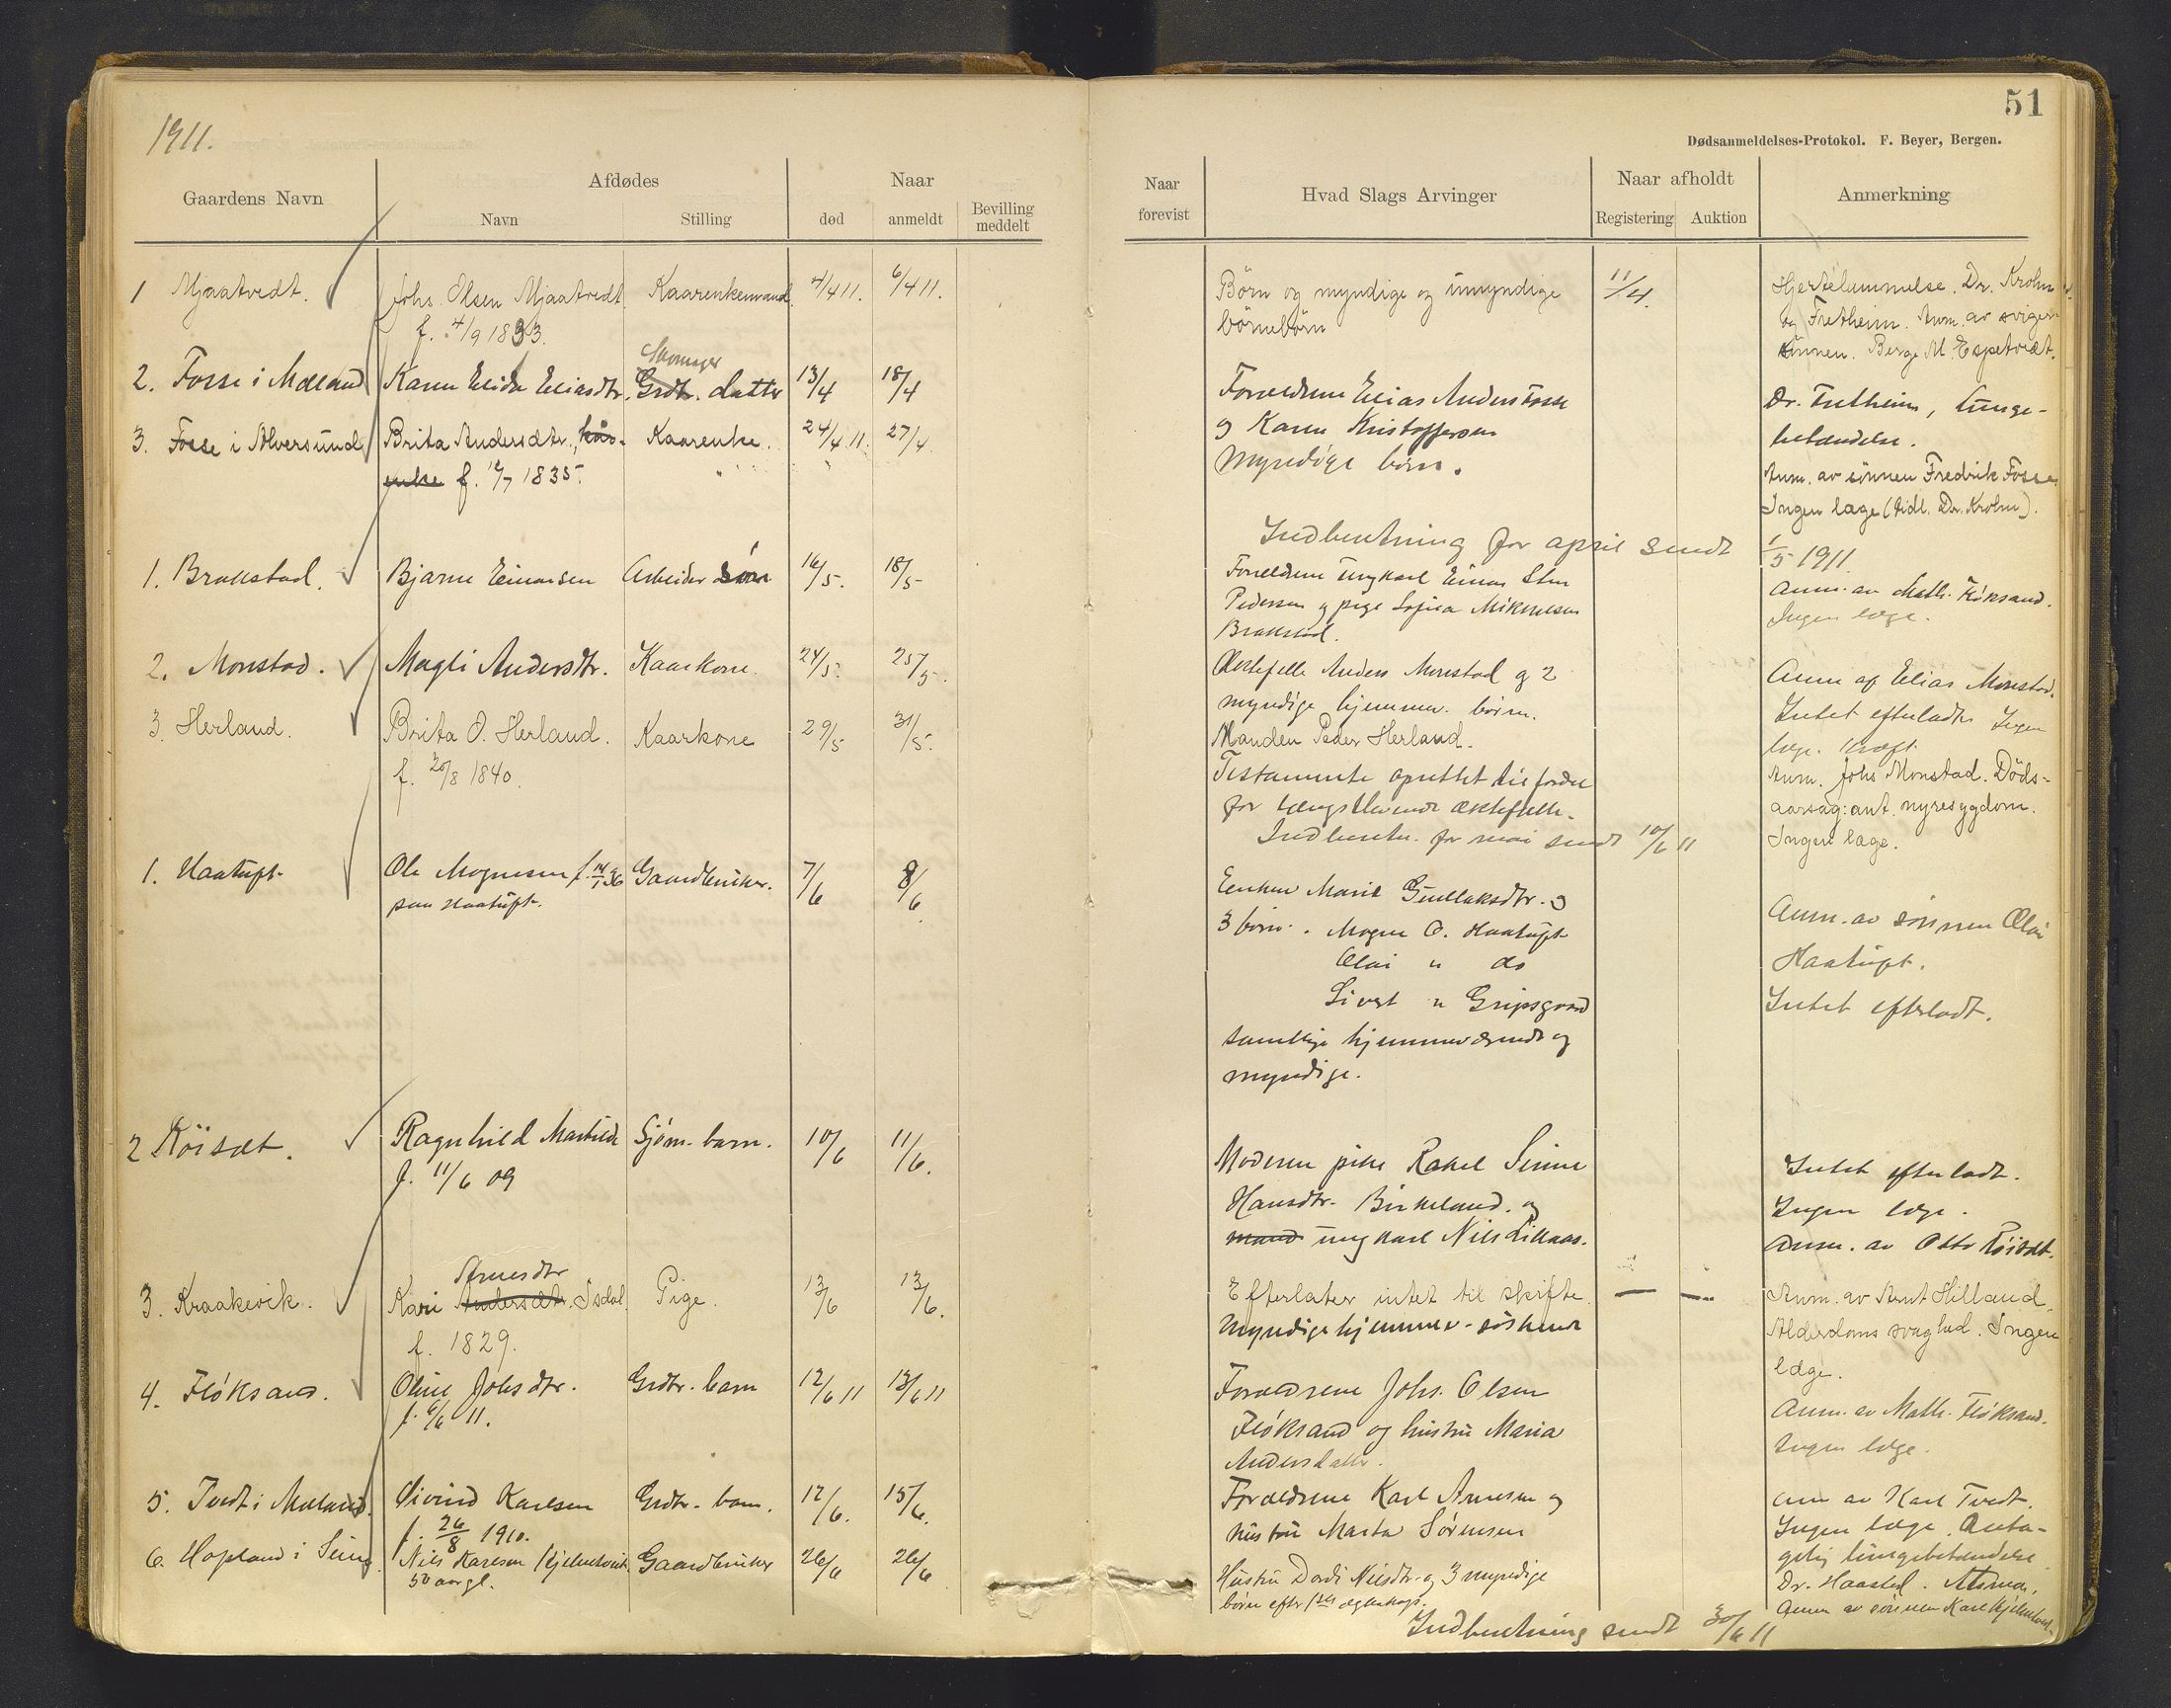 1911.
51
Dødsanmeldelses-Protokol. F. Beyer, Bergen.
Gaardens Navn
Afdødes
Navn
Stilling
Naar
død
anmeldt
Bevilling
meddelt
Naar
forevist
Hvad Slags Arvinger
Naar afholdt
Registering
Auktion
Anmerkning
1 Mjaatvedt. Johs. Olsen Mjaatvedt Kaarenkemand 4/4 11. 6/4 11. Børn og myndige og umyndige 11/4. Hjertelammelse. Dr. Krohn
f. 4/9 1833. børnebørn og Fretheim. Anm. av sviger-
sønnen. Berge M. Espetvedt.
2. Fosse i Mæland Karen Elida Eliasdtr. Grdbr. datter 13/4 18/4 Forældrene Elias Anders Fosse Dr. Fretheim, lunge-
og Karen Kristoffersen betændelse.
3. Fosse i Alversund Brita Andersdtr., kår- Kaarenke. 24/4 11. 27/4 Myndige børn. Anm. av sønnen Fredrik Fosse
enke f. 12/7 1835. Ingen læge (tidl. Dr. Krohn).
Indberetning for april sendt 1/5 1911.
1. Brakstad. Bjarne Einarsen Arbeider søn 16/5. 18/5 Forældrene ungkarl Einar Elin Anm. av Math. Fløksand.
Pedersen og pige Sofia Mikkelsen Ingen læge.
Brakstad.
2. Monstad. Magli Andersdtr. Kaarkone 24/5. 25/5. Ektefelle Anders Monstad og 2 Anm af Elias Monstad.
myndige hjemmev. børn. Intet efterladt. Ingen
læge. Kræft.
3. Herland. Brita O. Herland. Kaarkone 29/5 31/5. Manden Peder Herland. Anm. Johs Monstad. Døds-
f. 20/8 1840. Testamente oprettet til fordel aarsag: ant. nyresygdom.
for længstlevende ektefelle. Ingen læge.
Indberetn. for mai sendt 10/6 11
1. Haatuft Ole Mognesen f. 14/1 36 Gaardbruker. 7/6 8/6. Enken Marie Gullaksdtr. og Anm. av sønnen Olai
paa Haatuft. 3 børn. Mogne O. Haatuft Haatuft.
Olai " do Intet efterladt.
Sivert " Gripsgaard
samtlige hjemmeværende og
myndige.
2 Röisæt. Ragnhild Mathilde Sjøm. barn. 10/6 11/6. Moderen pike Rakel Sirine Intet efterladt.
f. 11/6 09 Hansdtr. Birkeland. og Ingen læge.
mand ungkarl Nils Lillaas. Anm. av Otto Röisæt.
3. Kraakevik. Kari Andersdtr. Arnesdtr Isdal Pige. 13/6 13/6. Efterlater intet til skifte. — — Anm. av Arnt Hilland.
f. 1829. Myndige hjemmev. søskende Alderdoms svaghed. Ingen
læge.
4. Fløksand. Oline Johsdtr. Grdbr. barn 12/6 11 13/6 11 Forældrene Johs. Olsen Anm. av Math. Fløksand.
f. 6/6 11. Fløksand og hustru Maria Ingen læge.
Andersdatter.
5. Tvedt i Mæland. Øivind Karlsen Grdbr. barn. 12/6. 15/6. Forældrene Karl Arnesen og Anm av Karl Tvedt.
f. 26/8 1910. hustru Marta Sørensen Ingen læge. Anta-
gelig lungebetændelse
6. Hopland i Seim Nils Karlsen Hjelmtveit Gaardbruker 26/6 26/6 Hustru Dordi Nilsdtr. og 3 myndige Dr. Haasted. Astma.
50 aar gl. børn efter 1ste ægteskap. Anm av sønnen Karl Hjelmtveit.
Indberetning sendt 30/6 11